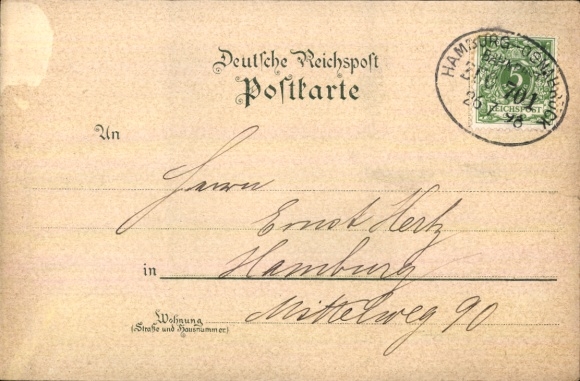 Deutsche Reichspost
Postkarte
HAMBURG-OSNABRÜCK
BAHNPOST
5
701
98
REICHSPOST
An
Herrn
Ernst Hertz
in Hamburg
Mittelweg 90
Wohnung
(Straße und Hausnummer)